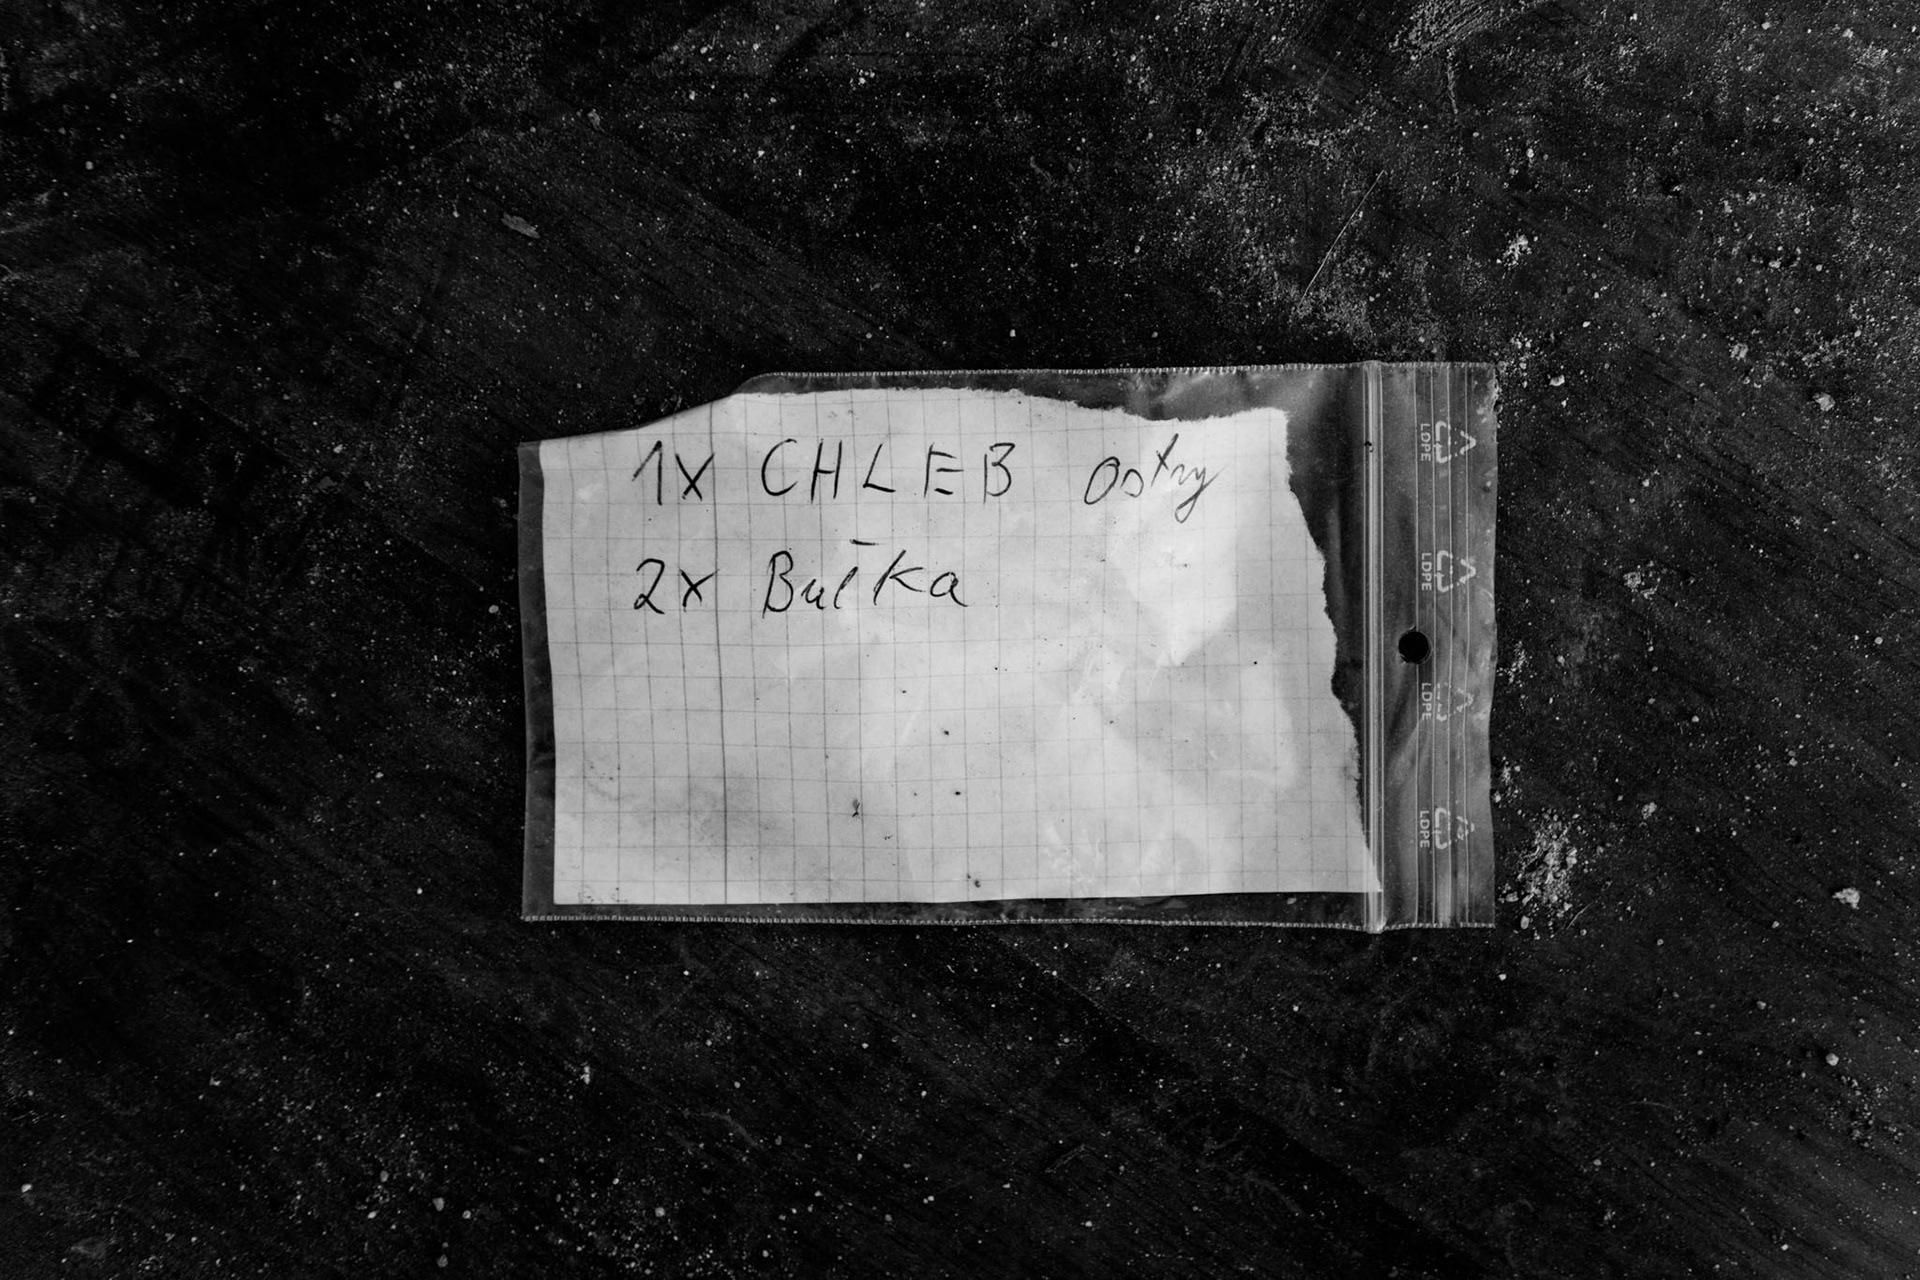 1x CHLEB ostry
2x Bułka
LDPE
LDPE
LDPE
LDPE